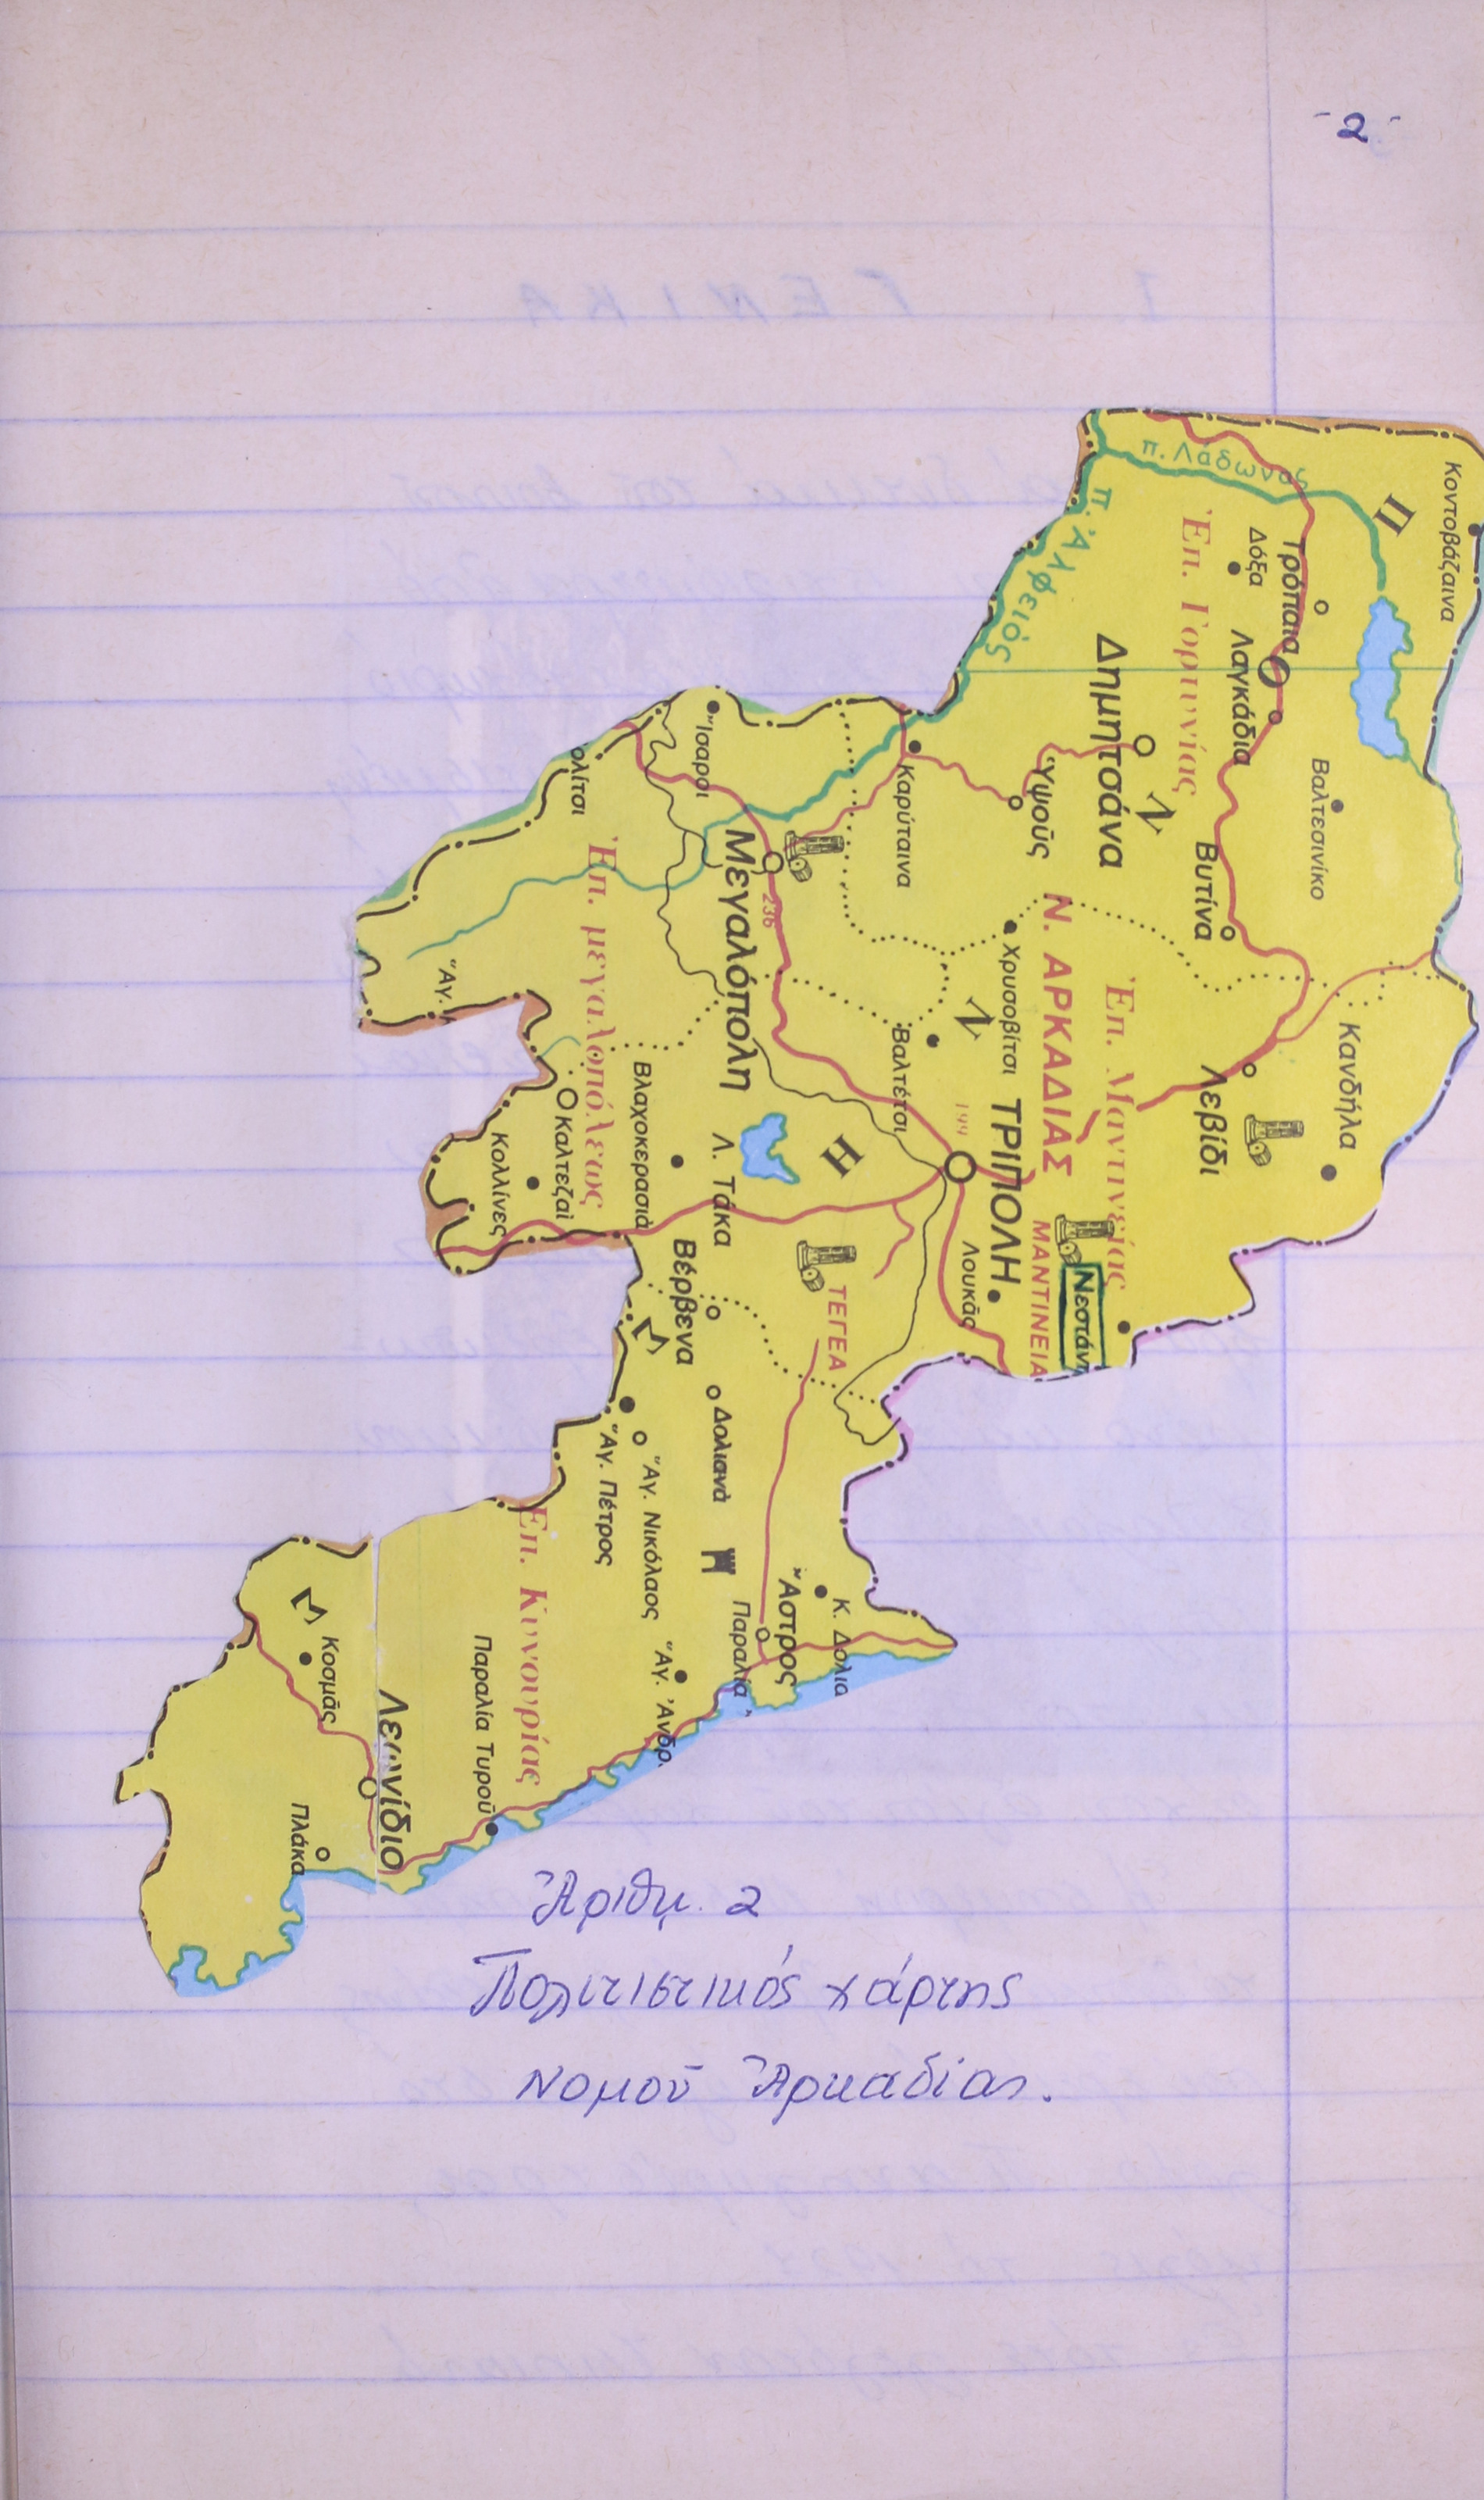 - 2 -
Κοντοβάζαινα
π. Λάδωνος
Π
π. Ἀλφειός
Δόξα
Τρόπαια
Ἐπ. Γορτυνίας
Λαγκάδια
Δημητσάνα
Βαλτεσινίκο
Ν
Βυτίνα
Ὑψοῦς
Καρύταινα
Ἴσαροι
ολίτσι
Μεγαλόπολη
236
Ἐπ. μεγαλοπόλεως
Ν. ΑΡΚΑΔΙΑΣ
Χρυσοβίτσι
Ν
Ἐπ. Μαντινείας
Κανδήλα
Λεβίδι
Βαλτέτσι
199
ΤΡΙΠΟΛΗ
Η
Λ. Τάκα
Βλαχοκερασιά
Ἅγ.
Καλτεζαί
Κολλίνες
ΜΑΝΤΙΝΕΙΑ
Νεστάνη
Λουκᾶς
ΤΕΓΕΑ
Βέρβενα
Σ
Δολιανά
Ἅγ. Πέτρος
Ἅγ. Νικόλαος
Ἐπ. Κυνουρίας
Ἄστρος
Κ. Δολια
Παραλία
Ἅγ. Ἀνδρ.
Παραλία Τυροῦ
Σ
Κοσμᾶς
Λεωνίδιο
Πλάκα
Ἀριθμ. 2
Πολιτιστικός χάρτης
Νομοῦ Ἀρκαδίας.